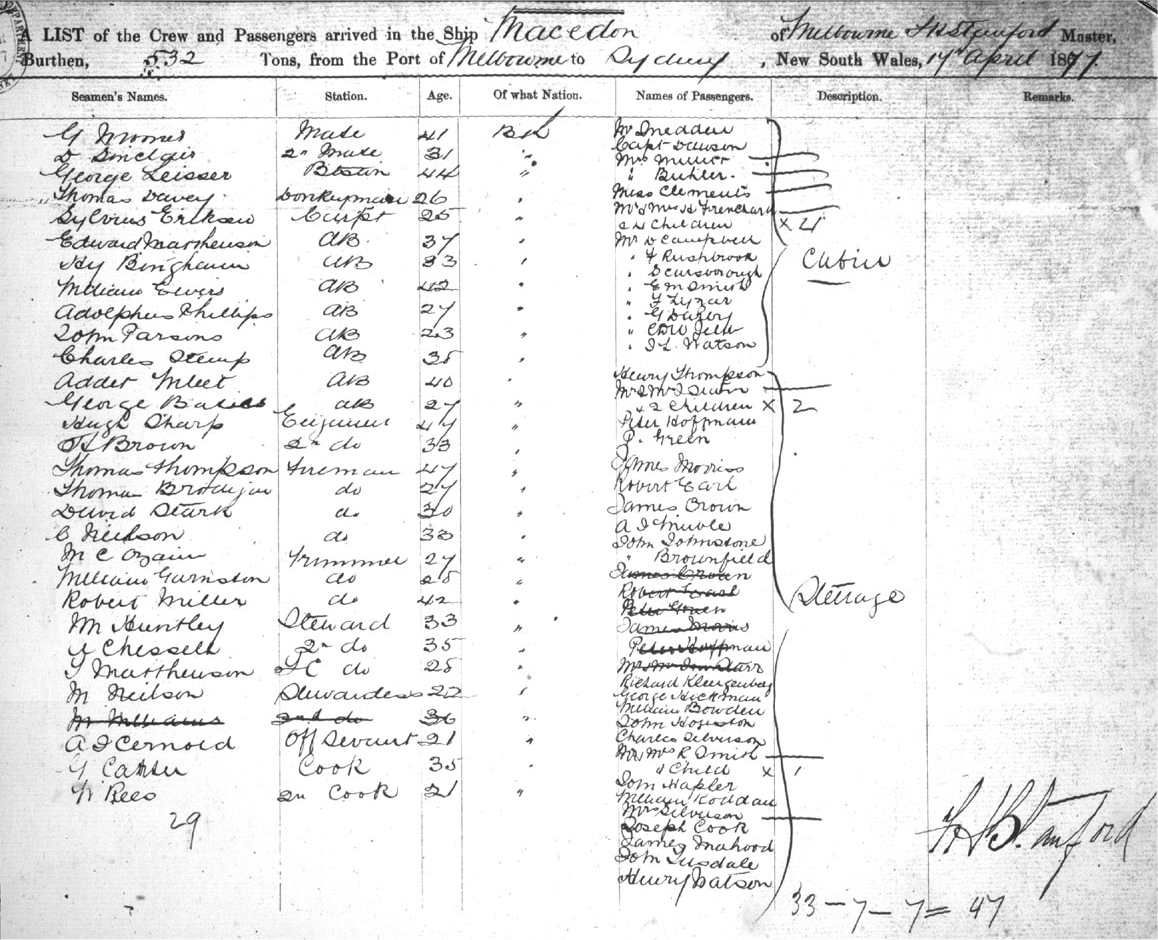 A LIST of the Crew and Passengers arrived in the Ship Macedon of Melbourne Stanford Master,
Burthen, 532 Tons, from the Port of Melbourne to Sydney, New South Wales, 14th April 1877
Seamen's Names. Station. Age. Of what Nation. Names of Passengers. Description. Remarks.
G Mate 41 Bh
D Sinclair 2n Mate 31 "
George Leisser 44 "
Thomas Davey Donkeyman 26 "
Sylvous Eriksen Carpt 25 "
Edward Mathewson AB 37 "
Hy Bingham AB 33 "
William Ewers AB 42 "
Adolphus Phillips AB 27 "
John Parsons AB 23 "
Charles Stemp AB 35 "
AB 40 "
George AB 27 "
Hugh Sharp Engineer 47 "
Brown 2n do 33 "
Thomas Thompson Fireman 47 "
Thomas do 27 "
David Stark do 30 "
C Neilson do 33 "
M C Trimmer 27 "
William Garnston do 25 "
Robert Miller do 42 "
M Huntley Steward 33 "
Chessell 2n do 35 "
Matthewson do 25 "
M Neilson Stewardess 22 "
M Williams 2nd do 36 "
A J Off Servant 21 "
G Cook 35 "
W Rees 2n Cook 21 "
29
Mr Snedden
Capt Dawson
Mrs
" Buhler
Miss Clements
Mr & Mrs H Trenchard
& 4 Children x 4
Mr D Campbell
" F Rushbrook
" Scarsborough
" E M Smith
" F
" G
"
" J L Watson
Cabin
Henry Thompson
Mr & Mrs
& 2 Children x 2
Peter Hoffmann
P. Green
James Morriss
Robert Earl
James Brown
A J
John Johnstone
" Brownfield
James Brown
Robert
Peter Green
James Morris
Peter Hoffmann
Mr & Mrs
Richard Klengenberg
George Hickman
William Bowden
John
Charles Silverson
Mr & Mrs R Smith
& Child x 1
Tom Hapler
William
Mrs Silverson
Joseph Cook
James Mahood
John Tisdale
Henry Watson
Steerage
Stanford
33 - 7 - 7 = 47